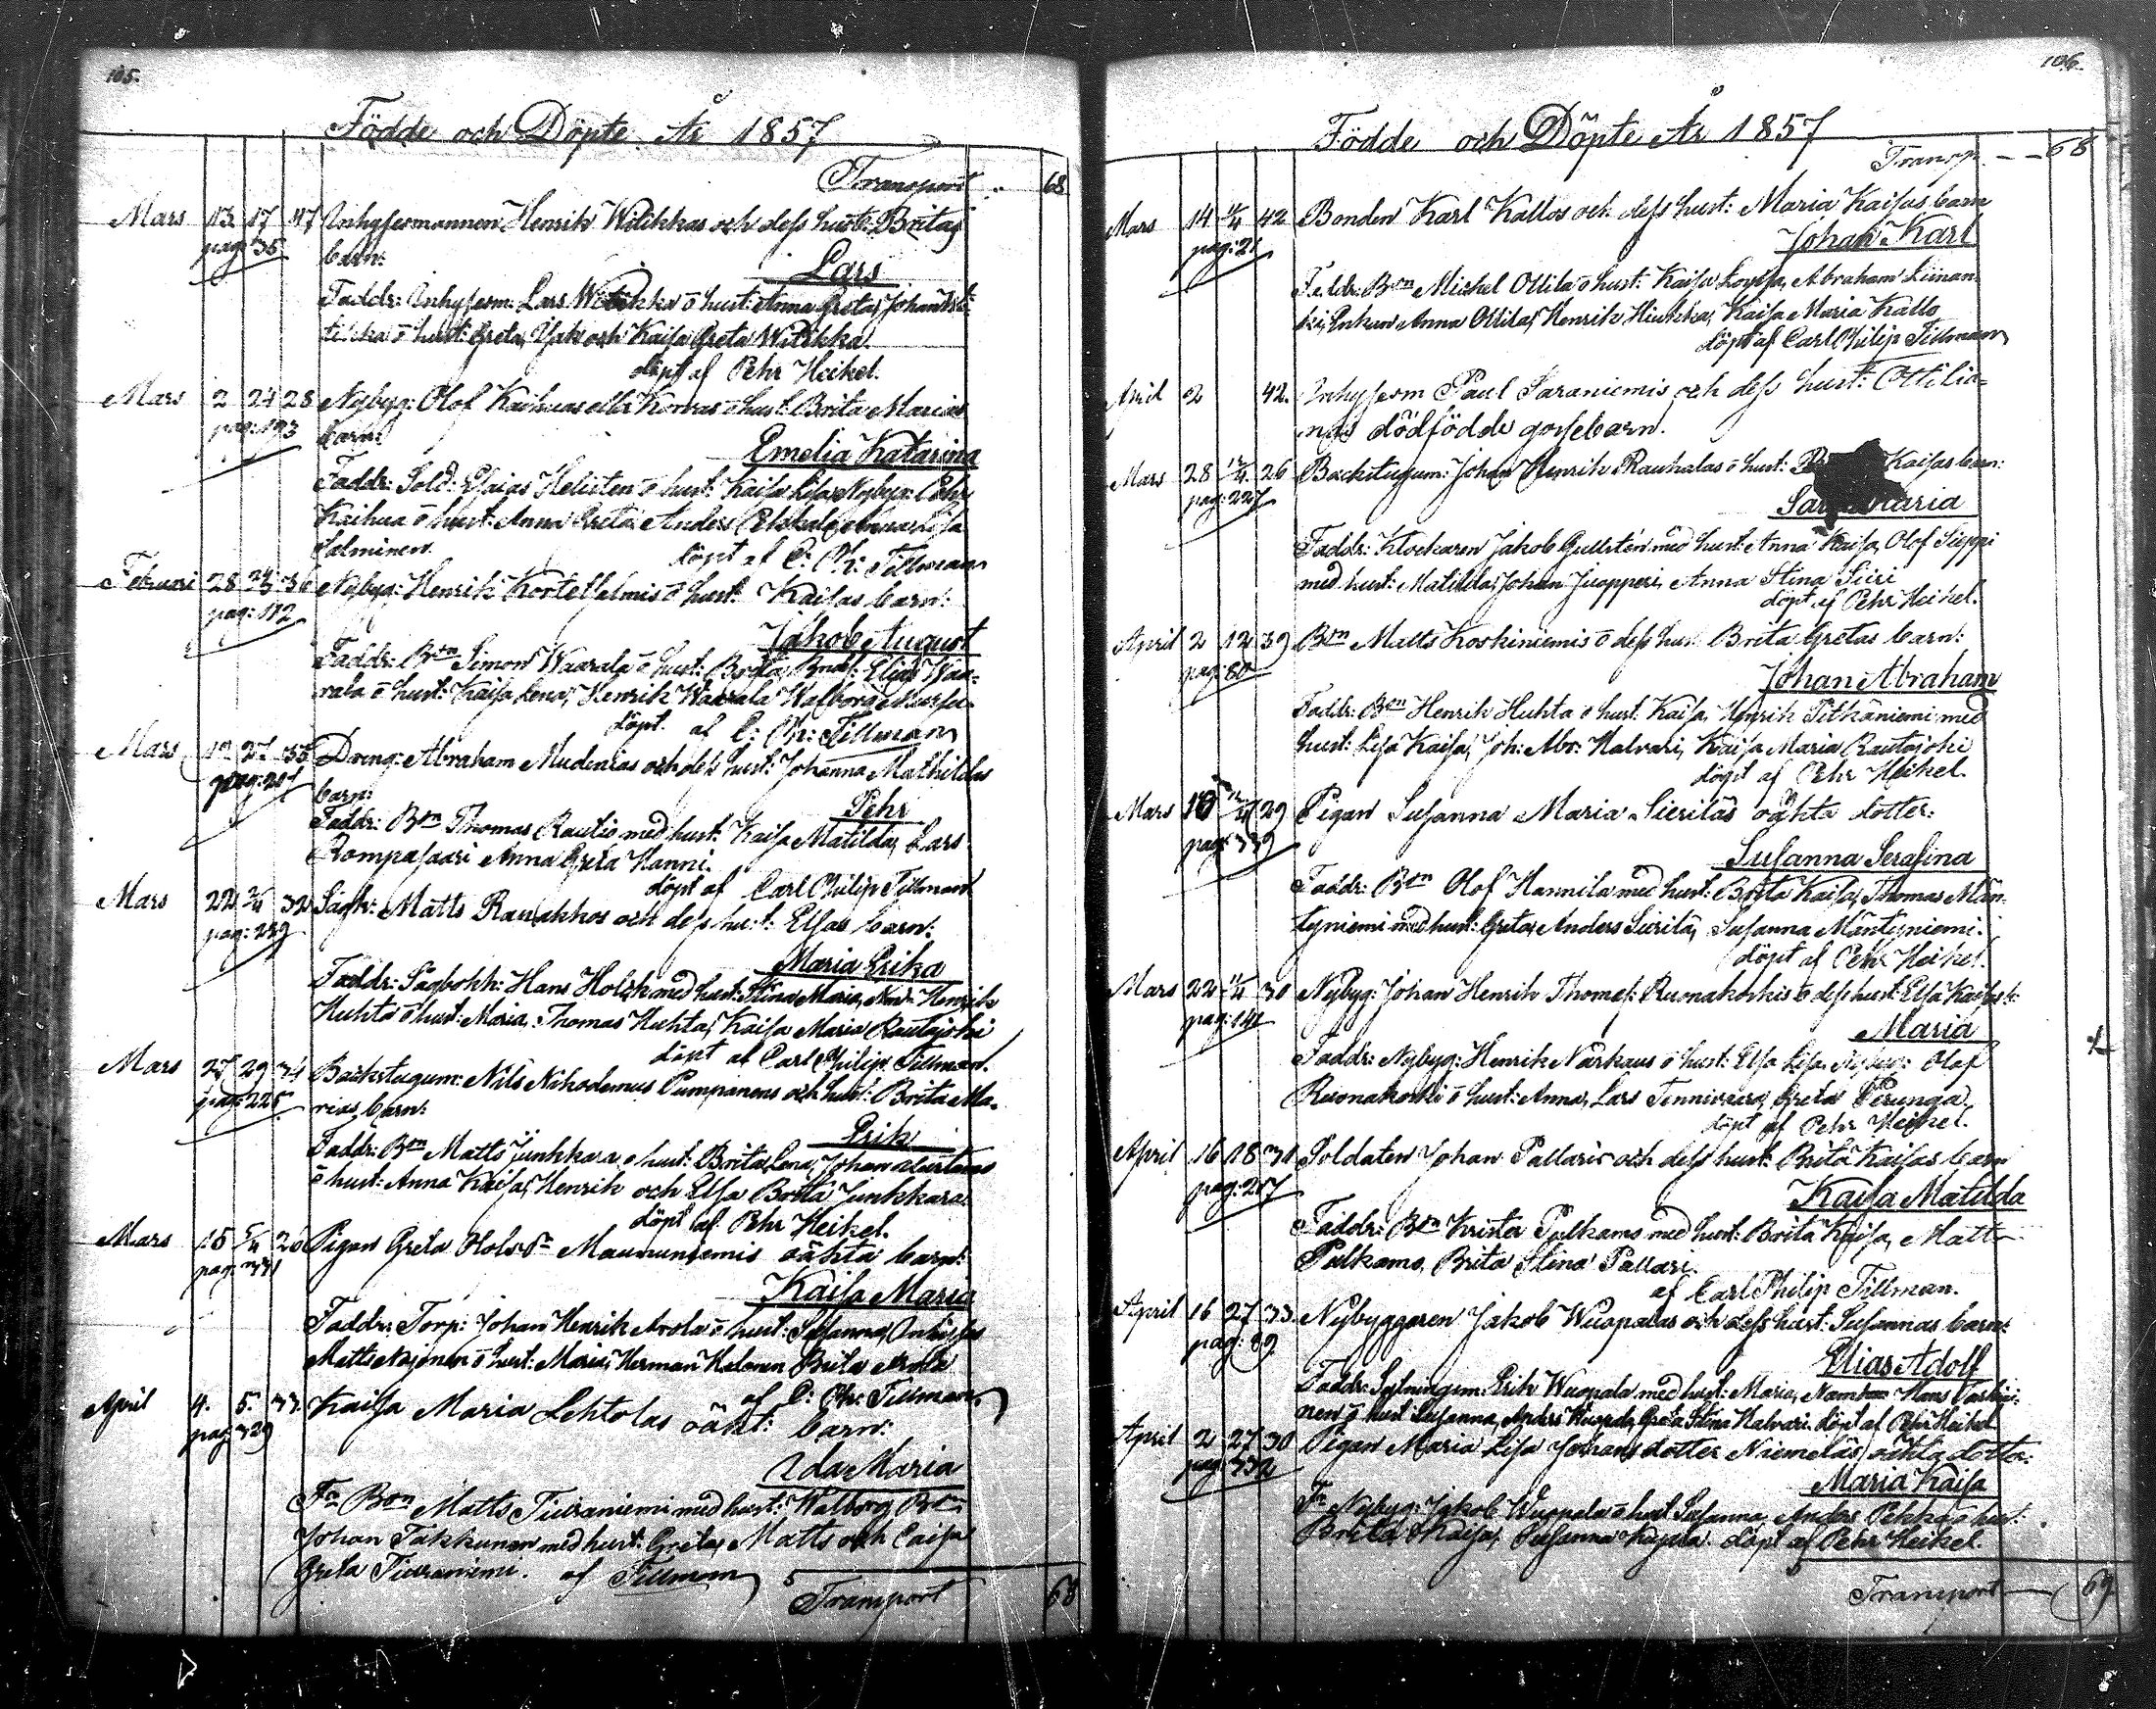 105.
Födde och Döpte År 1857
Transport 68
Mars 13 17 47 Inhysesmannen Henrik Witikkas och dess hust: Britas
pag: 35 barn:
Lars
Faddr: Inhysesm: Lars Witikka o hust: Anna Greta, Johan
o hust: Greta, Isak och Kaisa Greta Witikka.
döpt af Pehr Heikel.
Mars 2 24 28 Nybyg: Olof Kaihuas eller Korvas o hust: Brita Marias
pag: 193 barn:
Emelia Katarina
Faddr: Sold: Esaias Helisten o hust: Kaisa Lisa, Nybyg: Pehr
Kaihua o hust: Anna Greta, Anders Anna Lisa
Salminen. döpt af C: Ph: Tillman
Februari 28 24/3 36 Nybyg: Henrik Kortetsalmis o hust: Kaisas barn:
pag: 112
Jakob August
Faddr: Bon Simon Waarala o hust: Brita, Elias Waa-
rala o hust: Kaisa Lena, Henrik Waarala Walborg
döpt af C: Ph: Tillman
Mars 27 35 Dreng: Abraham Mudenias och dess hust: Johanna Mathildas
barn:
Pehr
Faddr: Bon Thomas Rautio med hust: Kaisa Matilda, Lars
Rompasaari Anna Greta Hanni.
döpt af Carl Philip Tillman
Mars 22 32 Matts Ranakkos och dess hust: Elsas barn:
pag: 229
Maria Erika
Faddr: Sågbokh: Hans Holck med hust: Stina Maria, Henrik
Huhta o hust: Maria, Thomas Huhta, Kaisa Maria Rautajoki
döpt af Carl Philip Tillman.
Mars 27 29 34 Backstugum: Nils Nikodemus Pumpanens och hust: Brita Ma-
pag: 225 rias barn:
Erik
Faddr: Bon Matts Junkkara o hust: Brita Lena, Johan
o hust: Anna Kaisa, Henrik och Elsa Brita Junkkara.
döpt af Pehr Heikel.
Mars 15 5/4 26 Pigan Greta Maununiemis oäkta barn:
pag: 331
Kaisa Maria
Faddr: Torp: Johan Henrik Arola o hust: Susanna,
Matts o hust: Maria, Herman Brita Arola
af C: Ph: Tillman
April 4. 5. 33. Kaisa Maria Lehtolas oäkt: barn:
pag: 329
Ida Maria
Fr. Bon Matts Tiuraniemi med hust: Walborg, Bon
Johan Takkunen med hust: Greta, Matts och Caisa
Greta Tiuraniemi. af Tillman
Transport 68
106.
Födde och Döpte År 1857
Transp. 68
Mars 14 42 Bonden Karl Kallos och dess hust: Maria Kaisas barn
pag: 21
Johan Karl
Faddr: Bon Michel Ollila o hust: Kaisa Lovisa, Abraham Liinan-
ki, Enkan Anna Ollila, Henrik Hiukka, Kaisa Maria Kallo
döpt af Carl Philip Tillman
April 2 42. Inhysesm Paul Saraniemis och dess hust: Ottilia-
nas dödfödde gossebarn.
Mars 28 12/4 26 Backstugum: Johan Henrik Rauhalas o hust: Kaisas barn:
pag: 227
Sara Maria
Faddr: Klockaren Jakob Gullstén med hust: Anna Kaisa, Olof Sieppi
med hust: Matilda, Johan Juopperi, Anna Stina Siiri
döpt af Pehr Heikel.
April 2 12 39 Bon Matts Koskiniemis o dess hust Brita Gretas barn:
pag: 80
Johan Abraham
Faddr: Bon Henrik Huhta o hust: Kaisa, Henrik Pitkäniemi med
hust: Lisa Kaisa, Joh: Abr: Halvari, Kaisa Maria Rautajoki
döpt af Pehr Heikel.
Mars 10 12/4 29 Pigan Susanna Maria Sieriläs oäkta dotter:
pag: 339
Susanna Serafina
Faddr: Bon Olof Hannila med hust: Brita Kaisa, Thomas Män-
tyniemi med hust: Greta, Anders Sierilä, Susanna Mäntyniemi.
döpt af Pehr Heikel.
Mars 22 30 Nybyg: Johan Henrik Thomas: Ruonakoskis o dess hust: Elsa Kaisas b:
pag: 141
Maria
Faddr: Nybyg: Henrik Närkaus o hust: Elsa Lisa, Nybyg: Olof
Ruonakoski o hust: Anna, Lars Tennivaara, Greta Perunga.
döpt af Pehr Heikel.
April 16 18 31 Soldaten Johan Pallaris och dess hust: Brita Kaisas barn
pag: 217
Kaisa Matilda
Faddr: Bon Krister Pulkamo med hust: Brita Kaisa, Matts
Pulkamo, Brita Stina Pallari.
af Carl Philip Tillman.
April 16 27 33. Nybyggaren Jakob Wuopalas och dess hust: Susannas barn:
pag: 89
Elias Adolf
Faddr: Sytningsm: Erik Wuopala med hust: Maria, Hans
nen o hust Susanna, Anders Wuopala, Greta Stina Halvari. döpt af Pehr Heikel
April 2 27 30 Pigan Maria Lisa Johansdotter Niemeläs oäkta dotter:
pag: 332
Maria Kaisa
Fr Nybyg: Jakob Wuopala o hust Susanna, Anders Pekka o hust:
Brita Kaisa, Susanna döpt af Pehr Heikel.
Transport 69